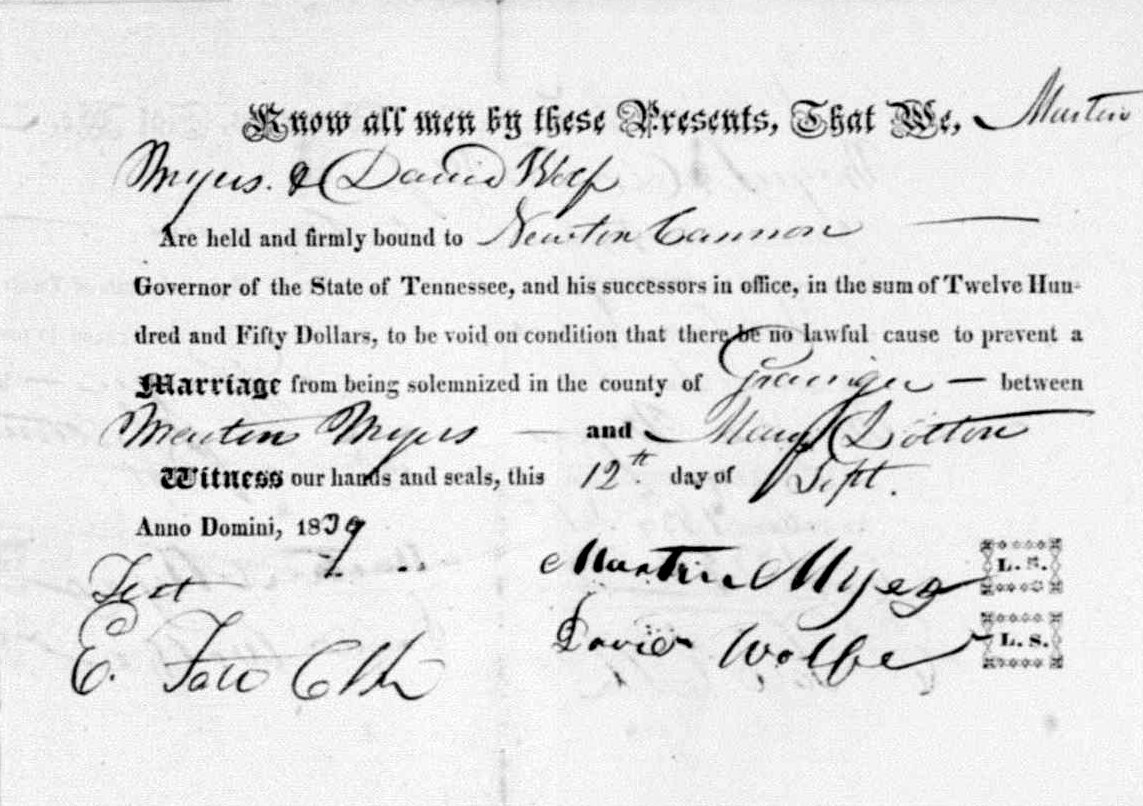 Know all men by these Presents, That We, Martin
Myers. & David Wolf
Are held and firmly bound to Newton Cannon
Governor of the State of Tennessee, and his successors in office, in the sum of Twelve Hun-
dred and Fifty Dollars, to be void on condition that there be no lawful cause to prevent a
Marriage from being solemnized in the county of Grainger — between
Martin Myers — and Mary Dotton
Witness our hands and seals, this 12th. day of Sept.
Anno Domini, 1839
Test
Martin Myers L. S.
E. Tate Clk
David Wolfe L. S.